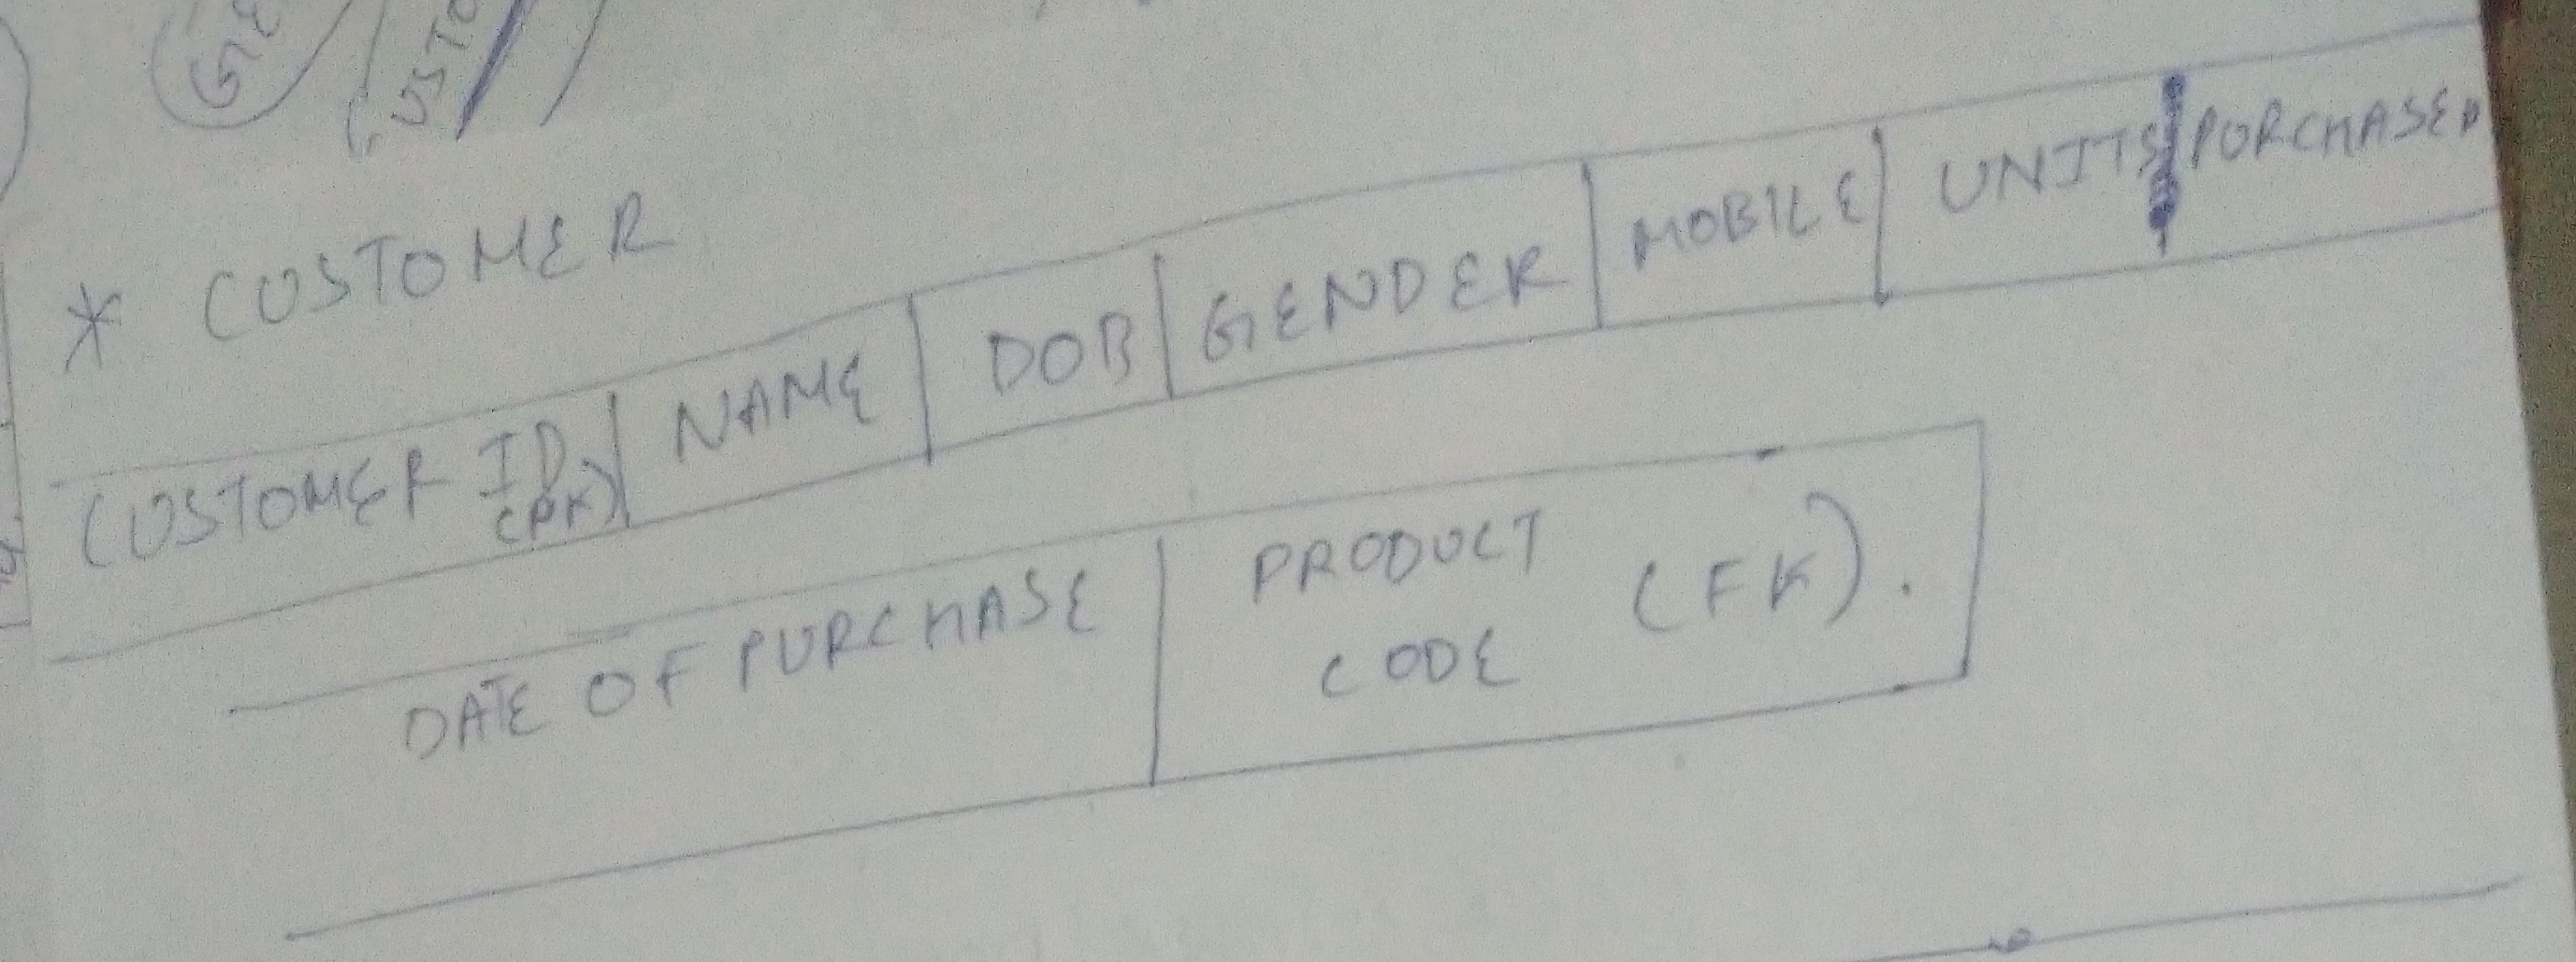 * CUSTOMER
CUSTOMER ID (PK) NAME DOB GENDER MOBILE UNITS PURCHASED
DATE OF PURCHASE PRODUCT CODE (FK).